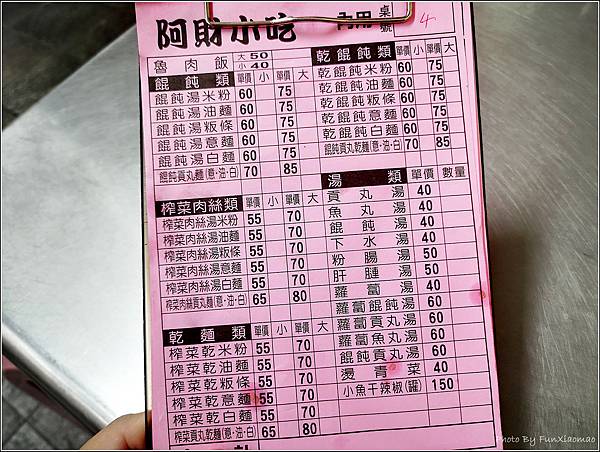 阿財小吃 內用 桌號 4
魯肉飯 大50 小40
餛飩類 單價 小 單價 大
餛飩湯米粉 60 75
餛飩湯油麵 60 75
餛飩湯粄條 60 75
餛飩湯意麵 60 75
餛飩湯白麵 60 75
餛飩貢丸麵(意·油·白) 70 85
榨菜肉絲類 單價 小 單價 大
榨菜肉絲湯米粉 55 70
榨菜肉絲湯油麵 55 70
榨菜肉絲湯粄條 55 70
榨菜肉絲湯意麵 55 70
榨菜肉絲湯白麵 55 70
榨菜肉絲貢丸麵(意·油·白) 65 80
乾麵類 單價 小 單價 大
榨菜乾米粉 55 70
榨菜乾油麵 55 70
榨菜乾粄條 55 70
榨菜乾意麵 55 70
榨菜乾白麵 55 70
榨菜貢丸乾麵(意·油·白) 65 80
乾餛飩類 單價 小 單價 大
乾餛飩米粉 60 75
乾餛飩油麵 60 75
乾餛飩粄條 60 75
乾餛飩意麵 60 75
乾餛飩白麵 60 75
餛飩貢丸乾麵(意·油·白) 70 85
湯類 單價 數量
貢丸湯 40
魚丸湯 40
餛飩湯 40
下水湯 40
粉腸湯 50
肝腱湯 50
蘿蔔湯 40
蘿蔔餛飩湯 60
蘿蔔貢丸湯 60
蘿蔔魚丸湯 60
餛飩貢丸湯 60
燙青菜 40
小魚干辣椒(罐) 150
Photo By FunXiaomao